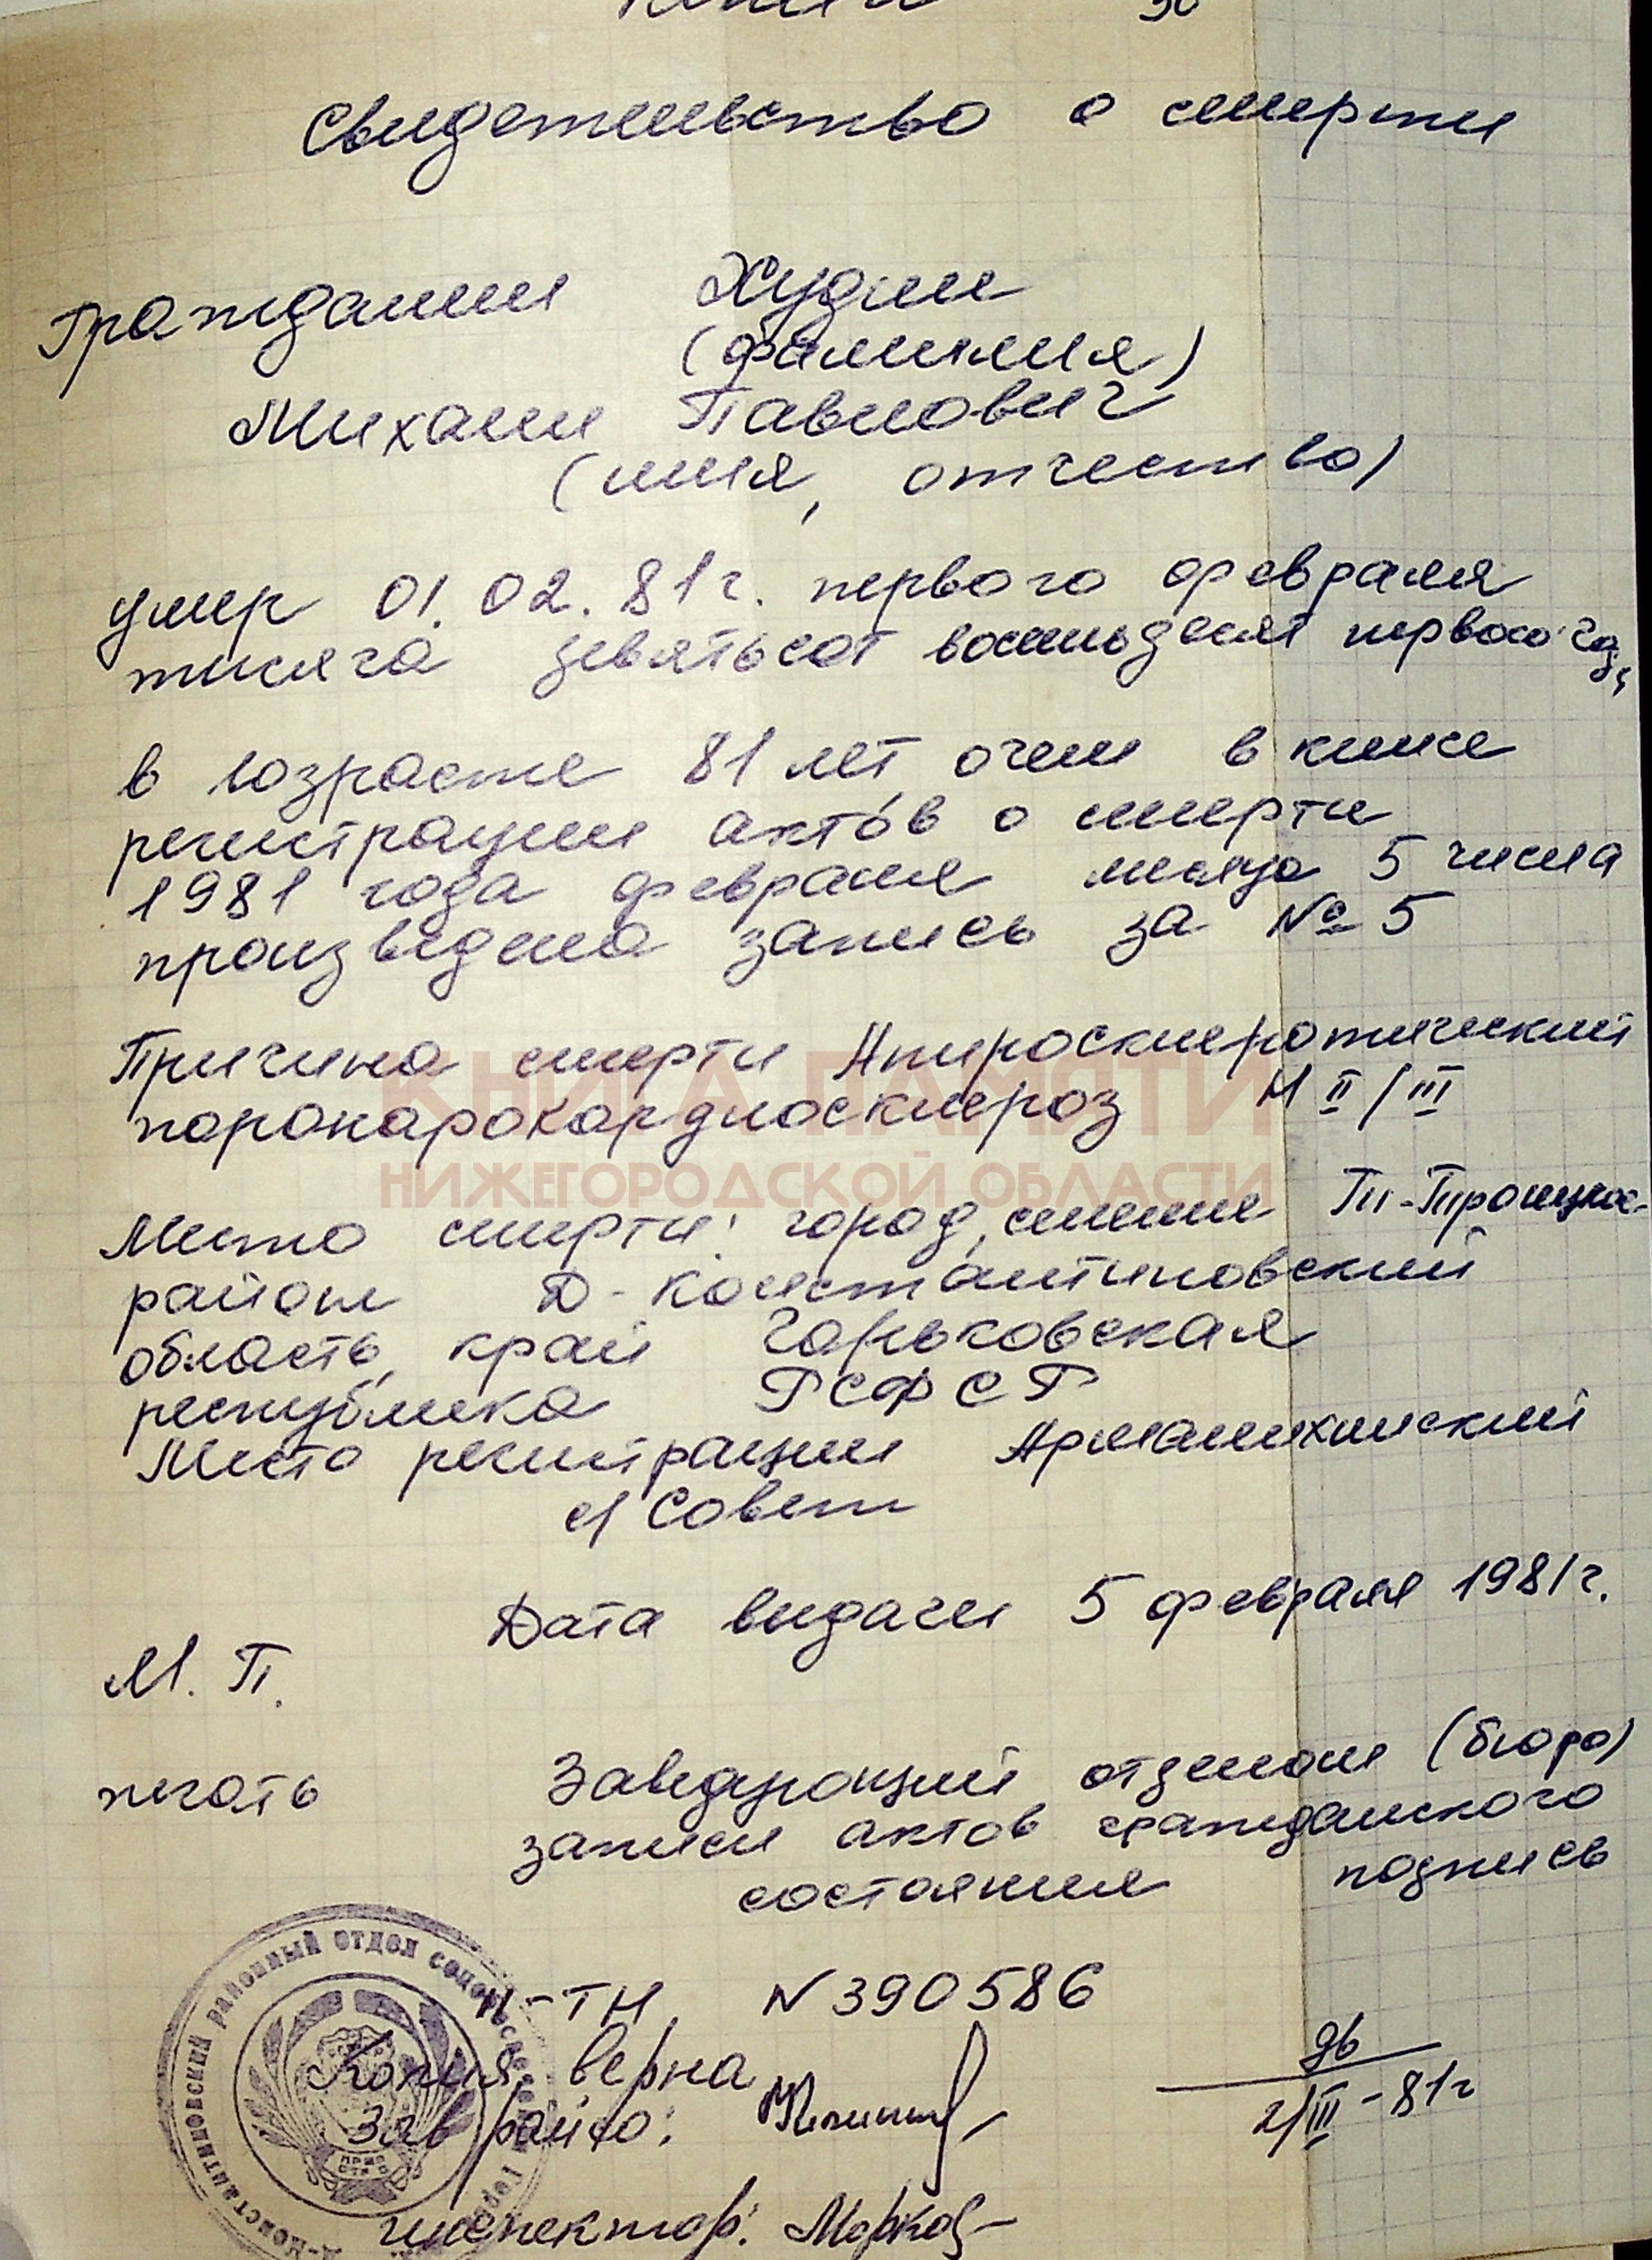 Копия
Свидетельство о смерти
Гражданин Худин
(фамилия)
Михаил Павлович
(имя, отчество)
умер 01.02.81г. первого февраля
тысяча девятьсот восемьдесят первого год,
в возрасте 81 лет, о чем в книге
регистрации актов о смерти
1981 года февраля месяца 5 числа
произведена запись за № 5
Причина смерти Атиросклеротический
коронарокардиосклероз Н II/III
КНИГА ПАМЯТИ
НИЖЕГОРОДСКОЙ ОБЛАСТИ
Место смерти: город, селение Троицкое
район Д-Константиновский
область, край Горьковская
республика РСФСР
Место регистрации Арманихинский
с/Совет
Дата выдачи 5 февраля 1981г.
М. П.
печать Заведующий отделом (бюро)
записи актов гражданского
состояния подпись
II-ТН N 390586
Копия верна
Зав райсо:
2/III-81г
инспектор:
Д-КОНСТАНТИНОВСКИЙ РАЙОННЫЙ ОТДЕЛ